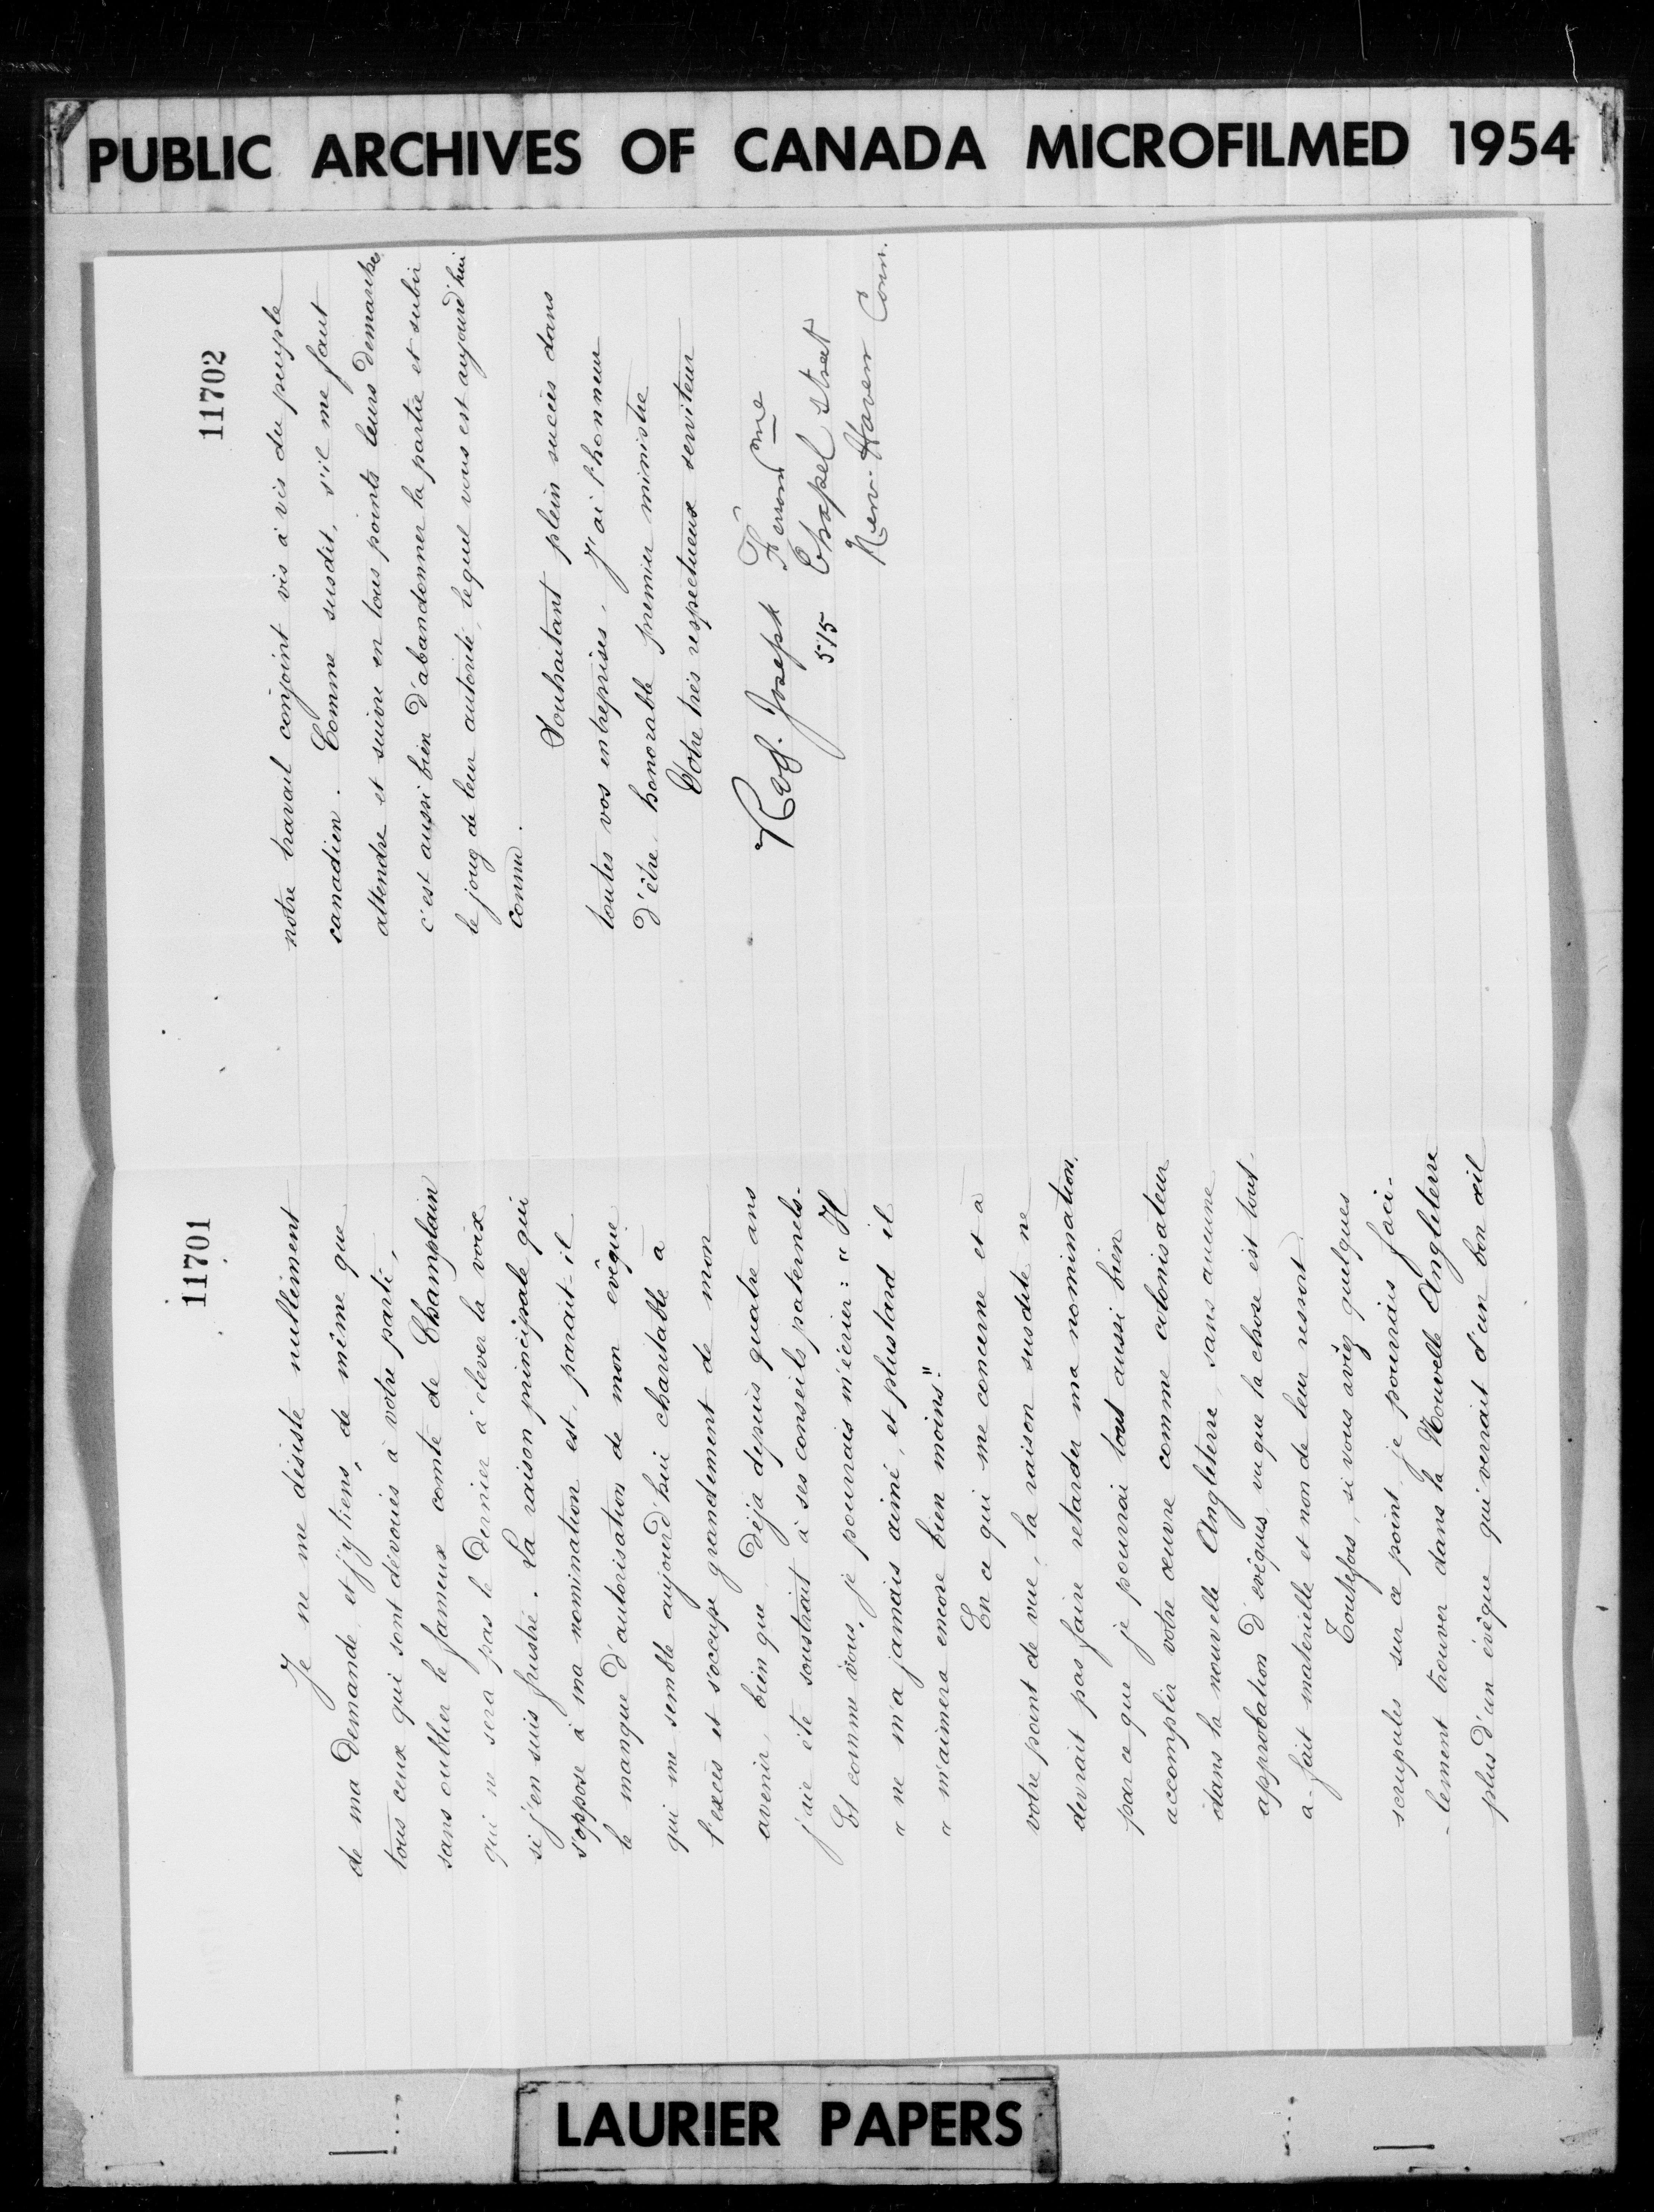 PUBLIC ARCHIVES OF CANADA MICROFILMED 1954
11701
Je ne me désiste nullement
de ma demande et j'y tiens, de même que
tous ceux qui sont dévoués à votre parti,
sans oublier le fameux comté de Champlain
qui ne sera pas le dernier à élever la voix
si j'en suis frustré. La raison principale qui
s'oppose à ma nomination est, parait-il
le manque d'autorisation de mon évêque
qui me semble aujourd'hui charitable à
l'excès et s'occupe grandement de mon
avenir, bien que, déjà depuis quatre ans
j'aie été soustrait à ses conseils paternels.
Et comme vous, je pourrais m'écrier: "Il
" ne m'a jamais aimé, et plustard il
" m'aimera encore bien moins."
En ce qui me concerne et à
votre point de vue, la raison susdite ne
devrait pas faire retarder ma nomination,
par ce que je pourrai tout aussi bien
accomplir votre œuvre comme colonisateur
dans la nouvelle Angleterre, sans aucune
approbation d'évêques, vu que la chose est tout-
a-fait matérielle et non de leur ressort.
Toutefois, si vous aviez quelques
scrupules sur ce point je pourrais faci-
-lement trouver dans la Nouvelle Angleterre
plus d'un évêque qui verrait d'un bon œil
11702
notre travail conjoint vis à vis du peuple
canadien. Comme susdit, s'il me faut
attendre et suivre en tous points leurs démarches
c'est aussi bien d'abandonner la partie et subir
le joug de leur autorité, lequel vous est aujourd'hui
connu.
Souhaitant plein succès dans
toutes vos entreprises. J'ai l'honneur
d'être, honorable premier ministre
Votre très respectueux serviteur
Rev. Joseph
515 Chapel Street
New-Haven Conn.
LAURIER PAPERS